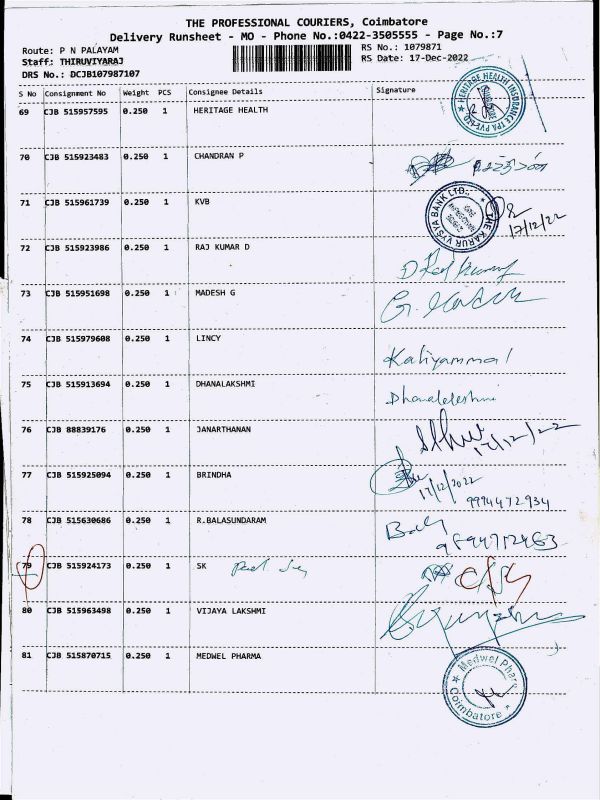 THE PROFESSIONAL COURIERS, Coimbatore
Delivery Runsheet - MO - Phone No.:0422-3505555 - Page No.:7
Route: P N PALAYAM RS No.: 1079871
Staff: THIRUVIYARAJ RS Date: 17-Dec-2022
DRS No.: DCJB107987107
S No Consignment No Weight PCS Consignee Details Signature
69 CJB 515957595 0.250 1 HERITAGE HEALTH HERITAGE HEALTH INSURANCE TPA PVT LTD
70 CJB 515923483 0.250 1 CHANDRAN P
71 CJB 515961739 0.250 1 KVB THE KARUR VYSYA BANK LTD.,
17/12/22
72 CJB 515923986 0.250 1 RAJ KUMAR D
D Raj Kumar
73 CJB 515951698 0.250 1 MADESH G
74 CJB 515979608 0.250 1 LINCY
Kaliyammal
75 CJB 515913694 0.250 1 DHANALAKSHMI
Dhanalakshmi
76 CJB 88839176 0.250 1 JANARTHANAN
17/12/22
77 CJB 515925094 0.250 1 BRINDHA
17/12/2022
9994472934
78 CJB 515630686 0.250 1 R.BALASUNDARAM
79 CJB 515924173 0.250 1 SK
80 CJB 515963498 0.250 1 VIJAYA LAKSHMI
81 CJB 515870715 0.250 1 MEDWEL PHARMA
Medwel Pharma
Coimbatore